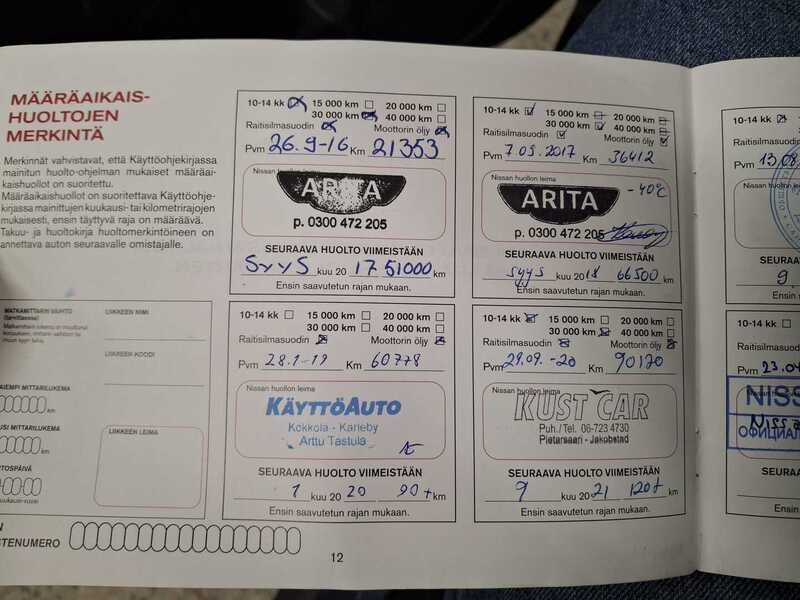 MÄÄRÄAIKAIS-
HUOLTOJEN
MERKINTÄ
Merkinnät vahvistavat, että Käyttöohjekirjassa
mainitun huolto-ohjelman mukaiset määräai-
kaishuollot on suoritettu.
Määräaikaishuollot on suoritettava Käyttöohje-
kirjassa mainittujen kuukausi- tai kilometrirajojen
mukaisesti, ensin täyttyvä raja on määräävä.
Takuu- ja huoltokirja huoltomerkintöineen on
annettava auton seuraavalle omistajalle.
MATKAMITTARIN VAIHTO
(tarvittaessa)
LIIKKEEN NIMI
LIIKKEEN KOODI
MITTARILUKEMA
km
MITTARILUKEMA
km
LIIKKEEN LEIMA
10-14 kk 15 000 km 20 000 km
30 000 km 40 000 km
Raitisilmasuodin Moottorin öljy
Pvm 26.9-16 Km 21353
Nissan huollon leima
ARITA
p. 0300 472 205
SEURAAVA HUOLTO VIIMEISTÄÄN
SYYS kuu 20 17 51000 km
Ensin saavutetun rajan mukaan.
10-14 kk 15 000 km 20 000 km
30 000 km 40 000 km
Raitisilmasuodin Moottorin öljy
Pvm 7.09.2017 Km 36412
Nissan huollon leima
-40°C
ARITA
p. 0300 472 205
SEURAAVA HUOLTO VIIMEISTÄÄN
syys kuu 20 18 66500 km
Ensin saavutetun rajan mukaan.
10-14 kk 15 000 km 20 000 km
30 000 km 40 000 km
Raitisilmasuodin Moottorin öljy
Pvm 28.1-19 Km 60778
Nissan huollon leima
KÄYTTÖAUTO
Kokkola - Karleby
Arttu Tastula
SEURAAVA HUOLTO VIIMEISTÄÄN
1 kuu 20 20 90+ km
Ensin saavutetun rajan mukaan.
10-14 kk 15 000 km 20 000 km
30 000 km 40 000 km
Raitisilmasuodin Moottorin öljy
Pvm 29.09.-20 Km 90170
Nissan huollon leima
KUST CAR
Puh./Tel. 06-723 4730
Pietarsaari - Jakobstad
SEURAAVA HUOLTO VIIMEISTÄÄN
9 kuu 20 21 120+ km
Ensin saavutetun rajan mukaan.
12
10-14 kk
Raitisilmasuodin
Pvm 13.08
Nissan
SEURA
9.
Ensin
10-14 kk
Raitisilmasuodin
Pvm 23.04
NISS
ОФИЦИАЛ
SEURA
Ensin